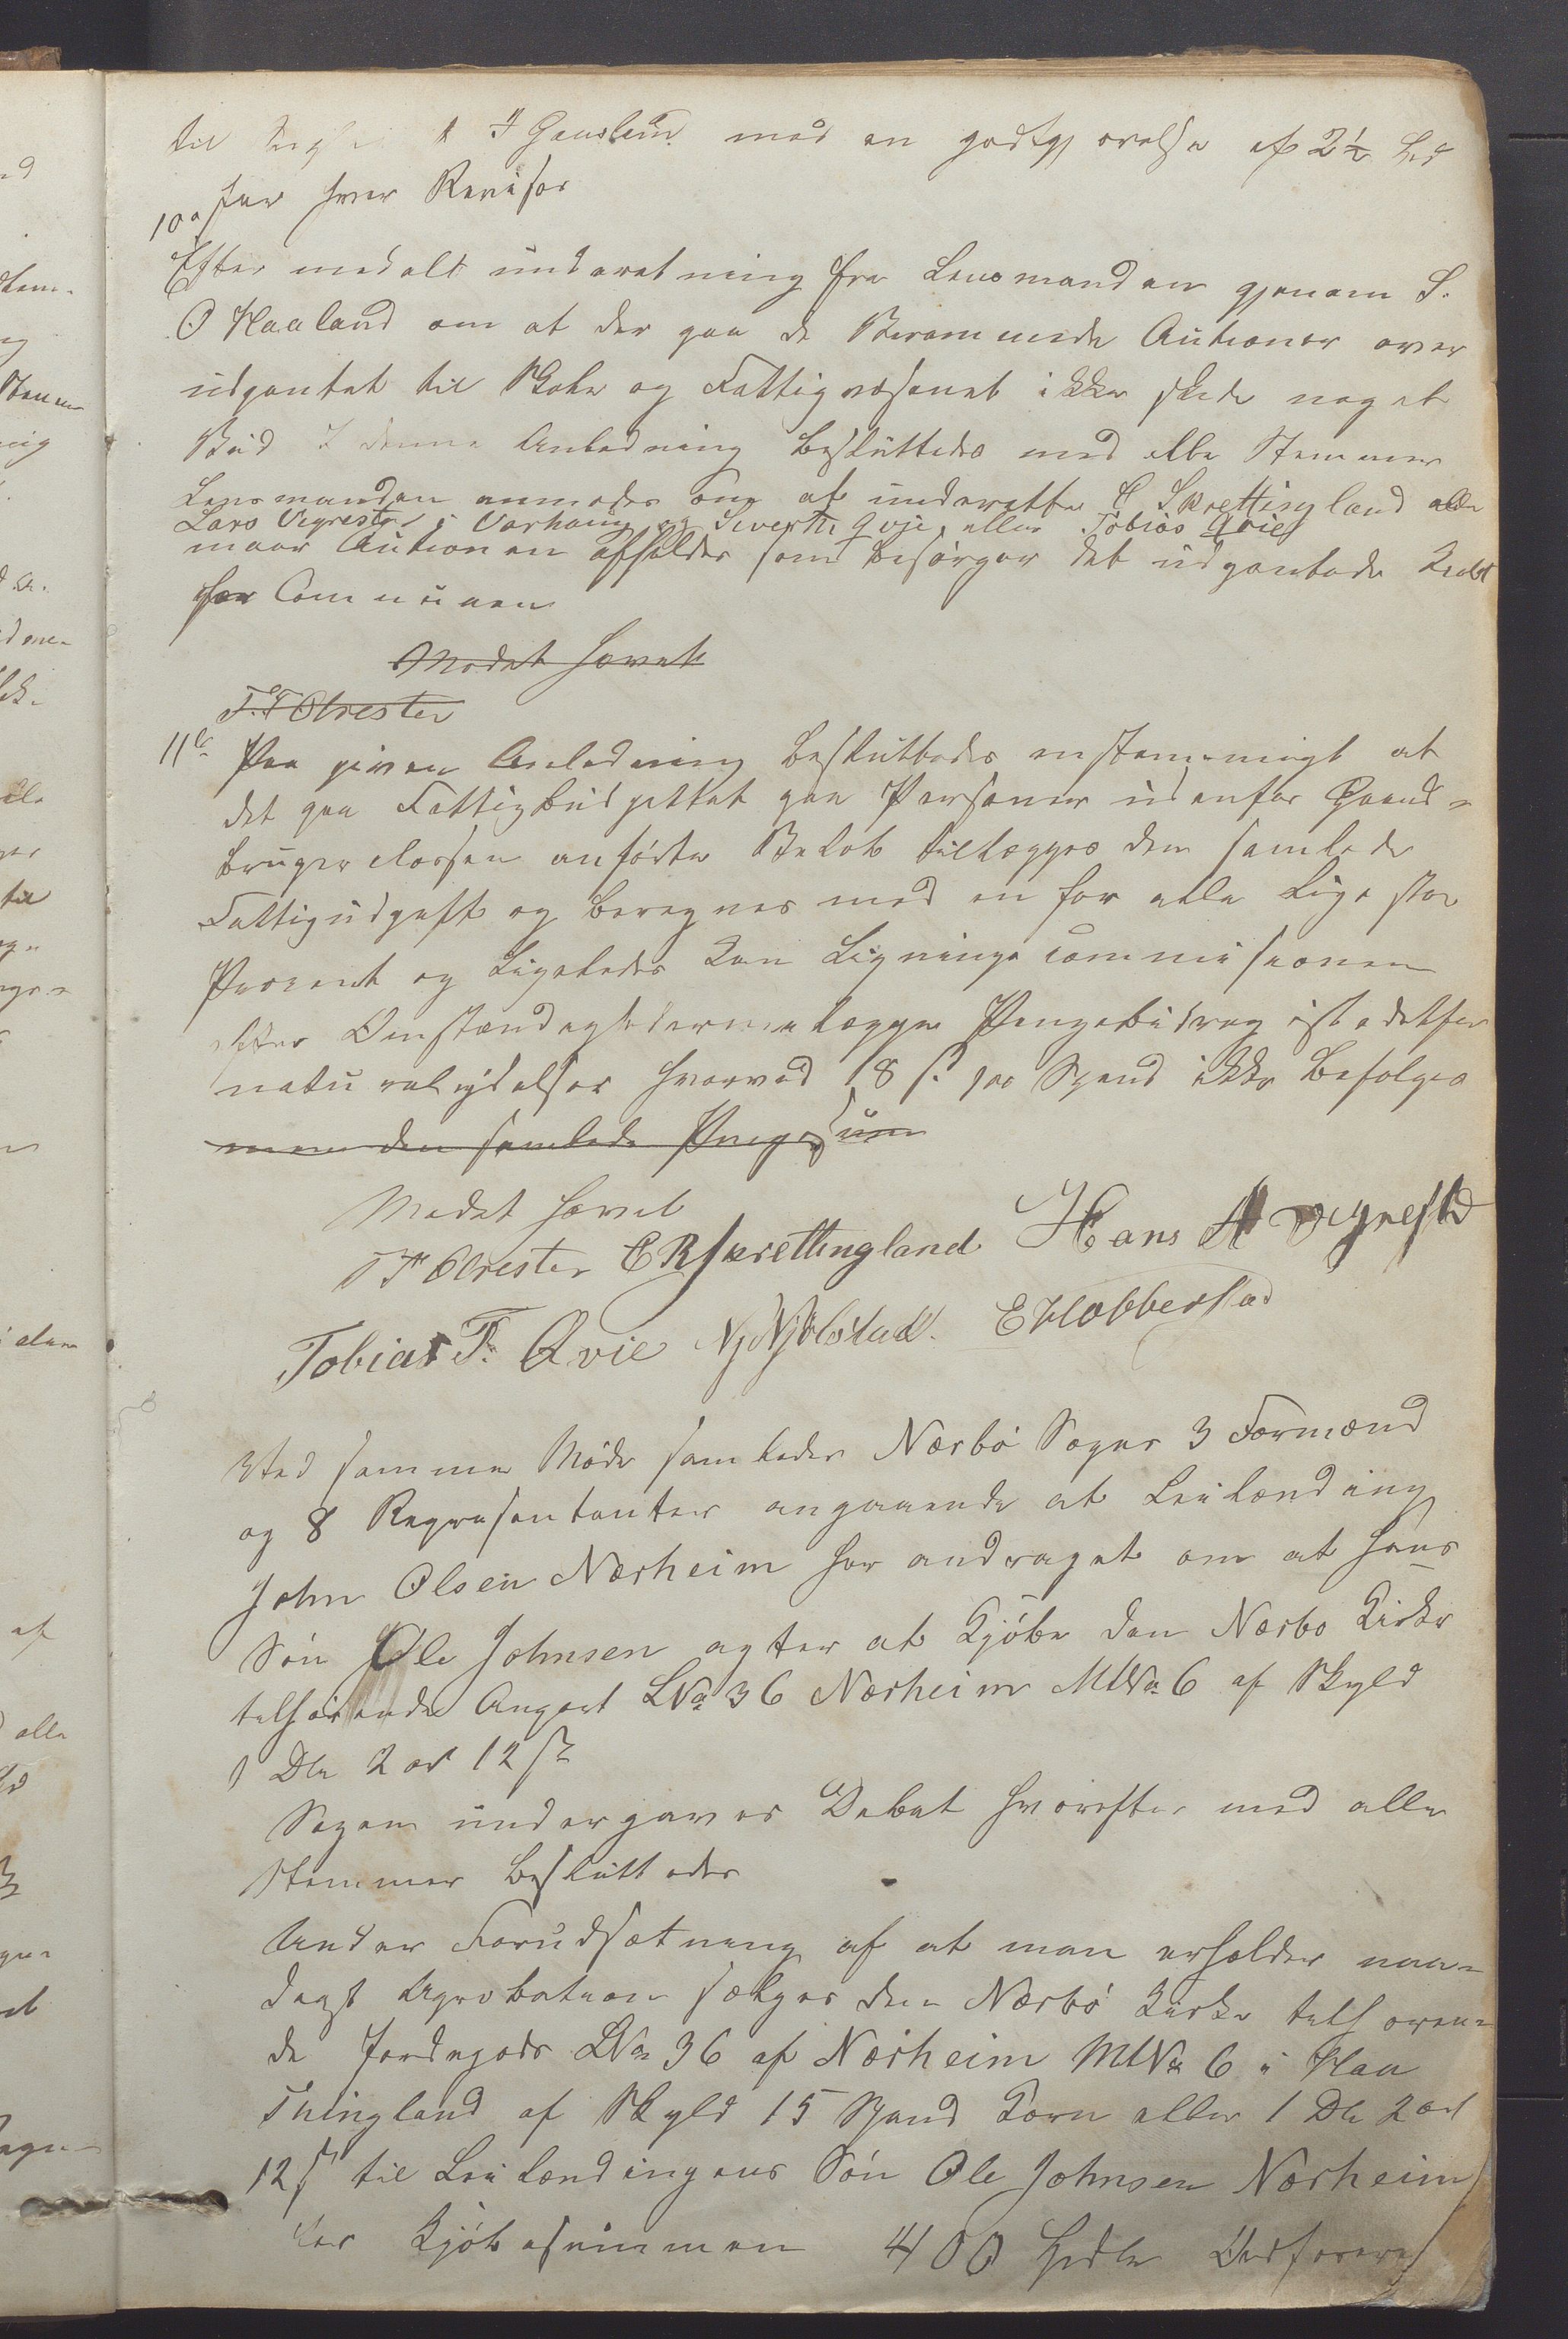 til T Gauslund med en godtgjorelse af 2½ Spd
for hver Revisor
10a
Efter medelt underetning fra Lensmanden gjenem S.
O Haaland om at der paa de Berammede Autioner over
udpantet til Skole og Fattigvæsenet ikke skede noget
Bud I denne Anledning besluttedes med alle Stemmer
Lensmanden anmodes om at underette E Skrettingland eller
Lars Vigrestad i Varhoug og Siverth Qvie eller Tobias Qvie
naar Autionen afholdes som besørger det udpantede Kiøbt
for Communen
Modet hævet
T. T Obrestad
11te Paa given Anledning besluttedes enstemmingt at
det paa Fattigbudgettet paa Personer udenfor Gaard-
brugerclassen anførte Beløb tillægges den samlede
Fattigudgift og beregnes med en for alle Lige stor
Procent og Ligeledes kan Lignings commisionen
efter Omstændighederne lægge Pengebidrag istedetfor
naturalydelser hvorved 18 s. pr Spand ikke befølges
men den samlede Penge Sum
Modet hævet
T T Obrestad E R Skrettingland Hans A Vigrestad
Tobias T. Qvie N Njølstad. E Hobberstad
Ved samme Møde samledes Nærbø Sogns 3 Formænd
og 8 Repræsentanter angaaende at Leilænding
John Olsen Nærheim har andraget om at hans
Søn Ole Johnsen agter at Kjøbe den Nærbo Kirke
tilhørende Anpart LNo 36 Nærheim MNo 6 af Skyld
1 Dlr 2 ort 12 s
Sagen undergaves Debat hvorefter med alle
Stemmer besluttedes
Under Forudsætning af at man erholder naa-
digst Aprobation sælges den Nærbø Kirke tilhøren-
de Jordegods LNo 36 af Nærheim MNo 6 i Haa
Thingland af Skyld 15 Spand Korn eller 1 Dlr 2 ort
12 s til Leilændingens Søn Ole Johnsen Nærheim
for Kjøbesummen 400 Spdlr